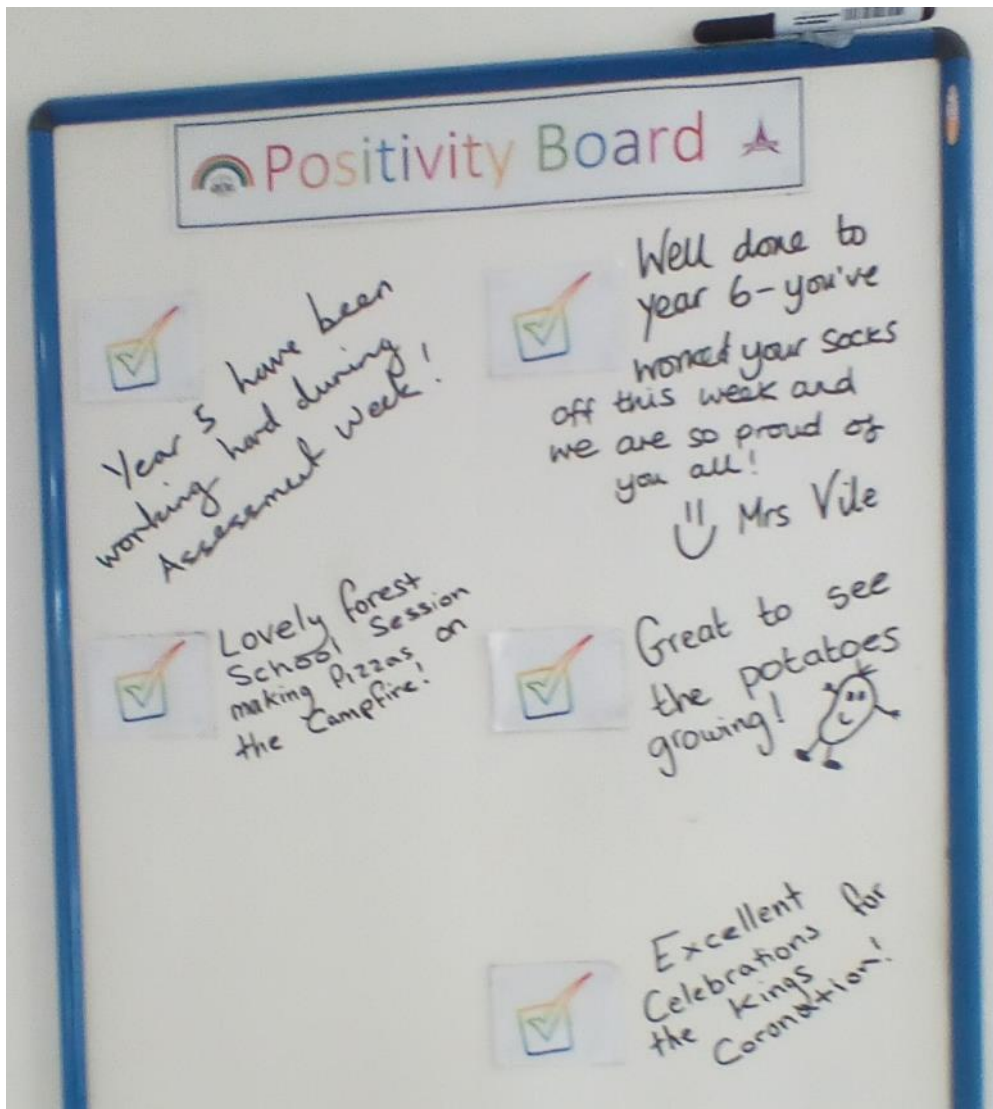 Positivity Board
Year 5 have been
working hard during
Assessment Week!
Well done to
year 6-you've
worked your socks
off this week and
we are so proud of
you all!
Mrs Vile
Lovely forest
School Session
making Pizzas on
the Campfire!
Great to see
the potatoes
growing!
Excellent
Celebrations for
the Kings
Coronation!